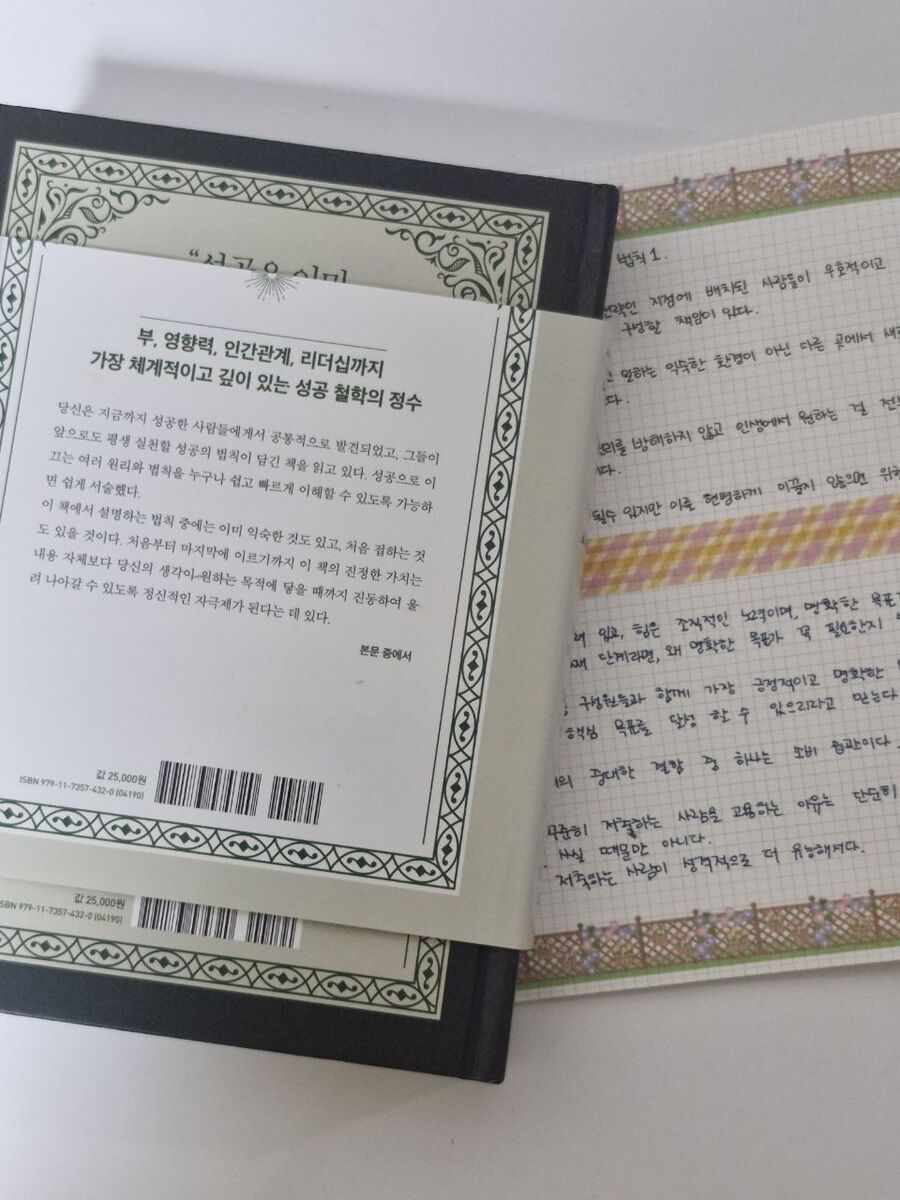 “성공은 이미
부, 영향력, 인간관계, 리더십까지
가장 체계적이고 깊이 있는 성공 철학의 정수
당신은 지금까지 성공한 사람들에게서 공통적으로 발견되었고, 그들이
앞으로도 평생 실천할 성공의 법칙이 담긴 책을 읽고 있다. 성공으로 이
끄는 여러 원리와 법칙을 누구나 쉽고 빠르게 이해할 수 있도록 가능하
면 쉽게 서술했다.
이 책에서 설명하는 법칙 중에는 이미 익숙한 것도 있고, 처음 접하는 것
도 있을 것이다. 처음부터 마지막에 이르기까지 이 책의 진정한 가치는
내용 자체보다 당신의 생각이 원하는 목적에 닿을 때까지 진동하여 울
려 나아갈 수 있도록 정신적인 자극제가 된다는 데 있다.
본문 중에서
값 25,000원
ISBN 979-11-7357-432-0 (04190)
값 25,000원
ISBN 979-11-7357-432-0 (04190)
법칙 1.
전략인 지점에 배치된 사람들이 우호적이고
구성할 책임이 있다.
원하는 익숙한 환경이 아닌 다른 곳에서
다.
방해하지 않고 인생에서 원하는 걸
다.
될수 있지만 이를 현명하게 이끌지 않으면
있고, 힘은 조직적인 노력이며, 명확한
단계라면, 왜 명확한 목표가 꼭 필요한지
구성원들과 함께 가장 긍정적이고 명확한
핵심 목표를 달성 할 수 있으리라고 믿는다
중대한 결함 중 하나는 소비 습관이다.
저축하는 사람을 고용하는 이유는 단순히
사실 때문만 아니다.
저축하는 사람이 성격적으로 더 유능해서다.